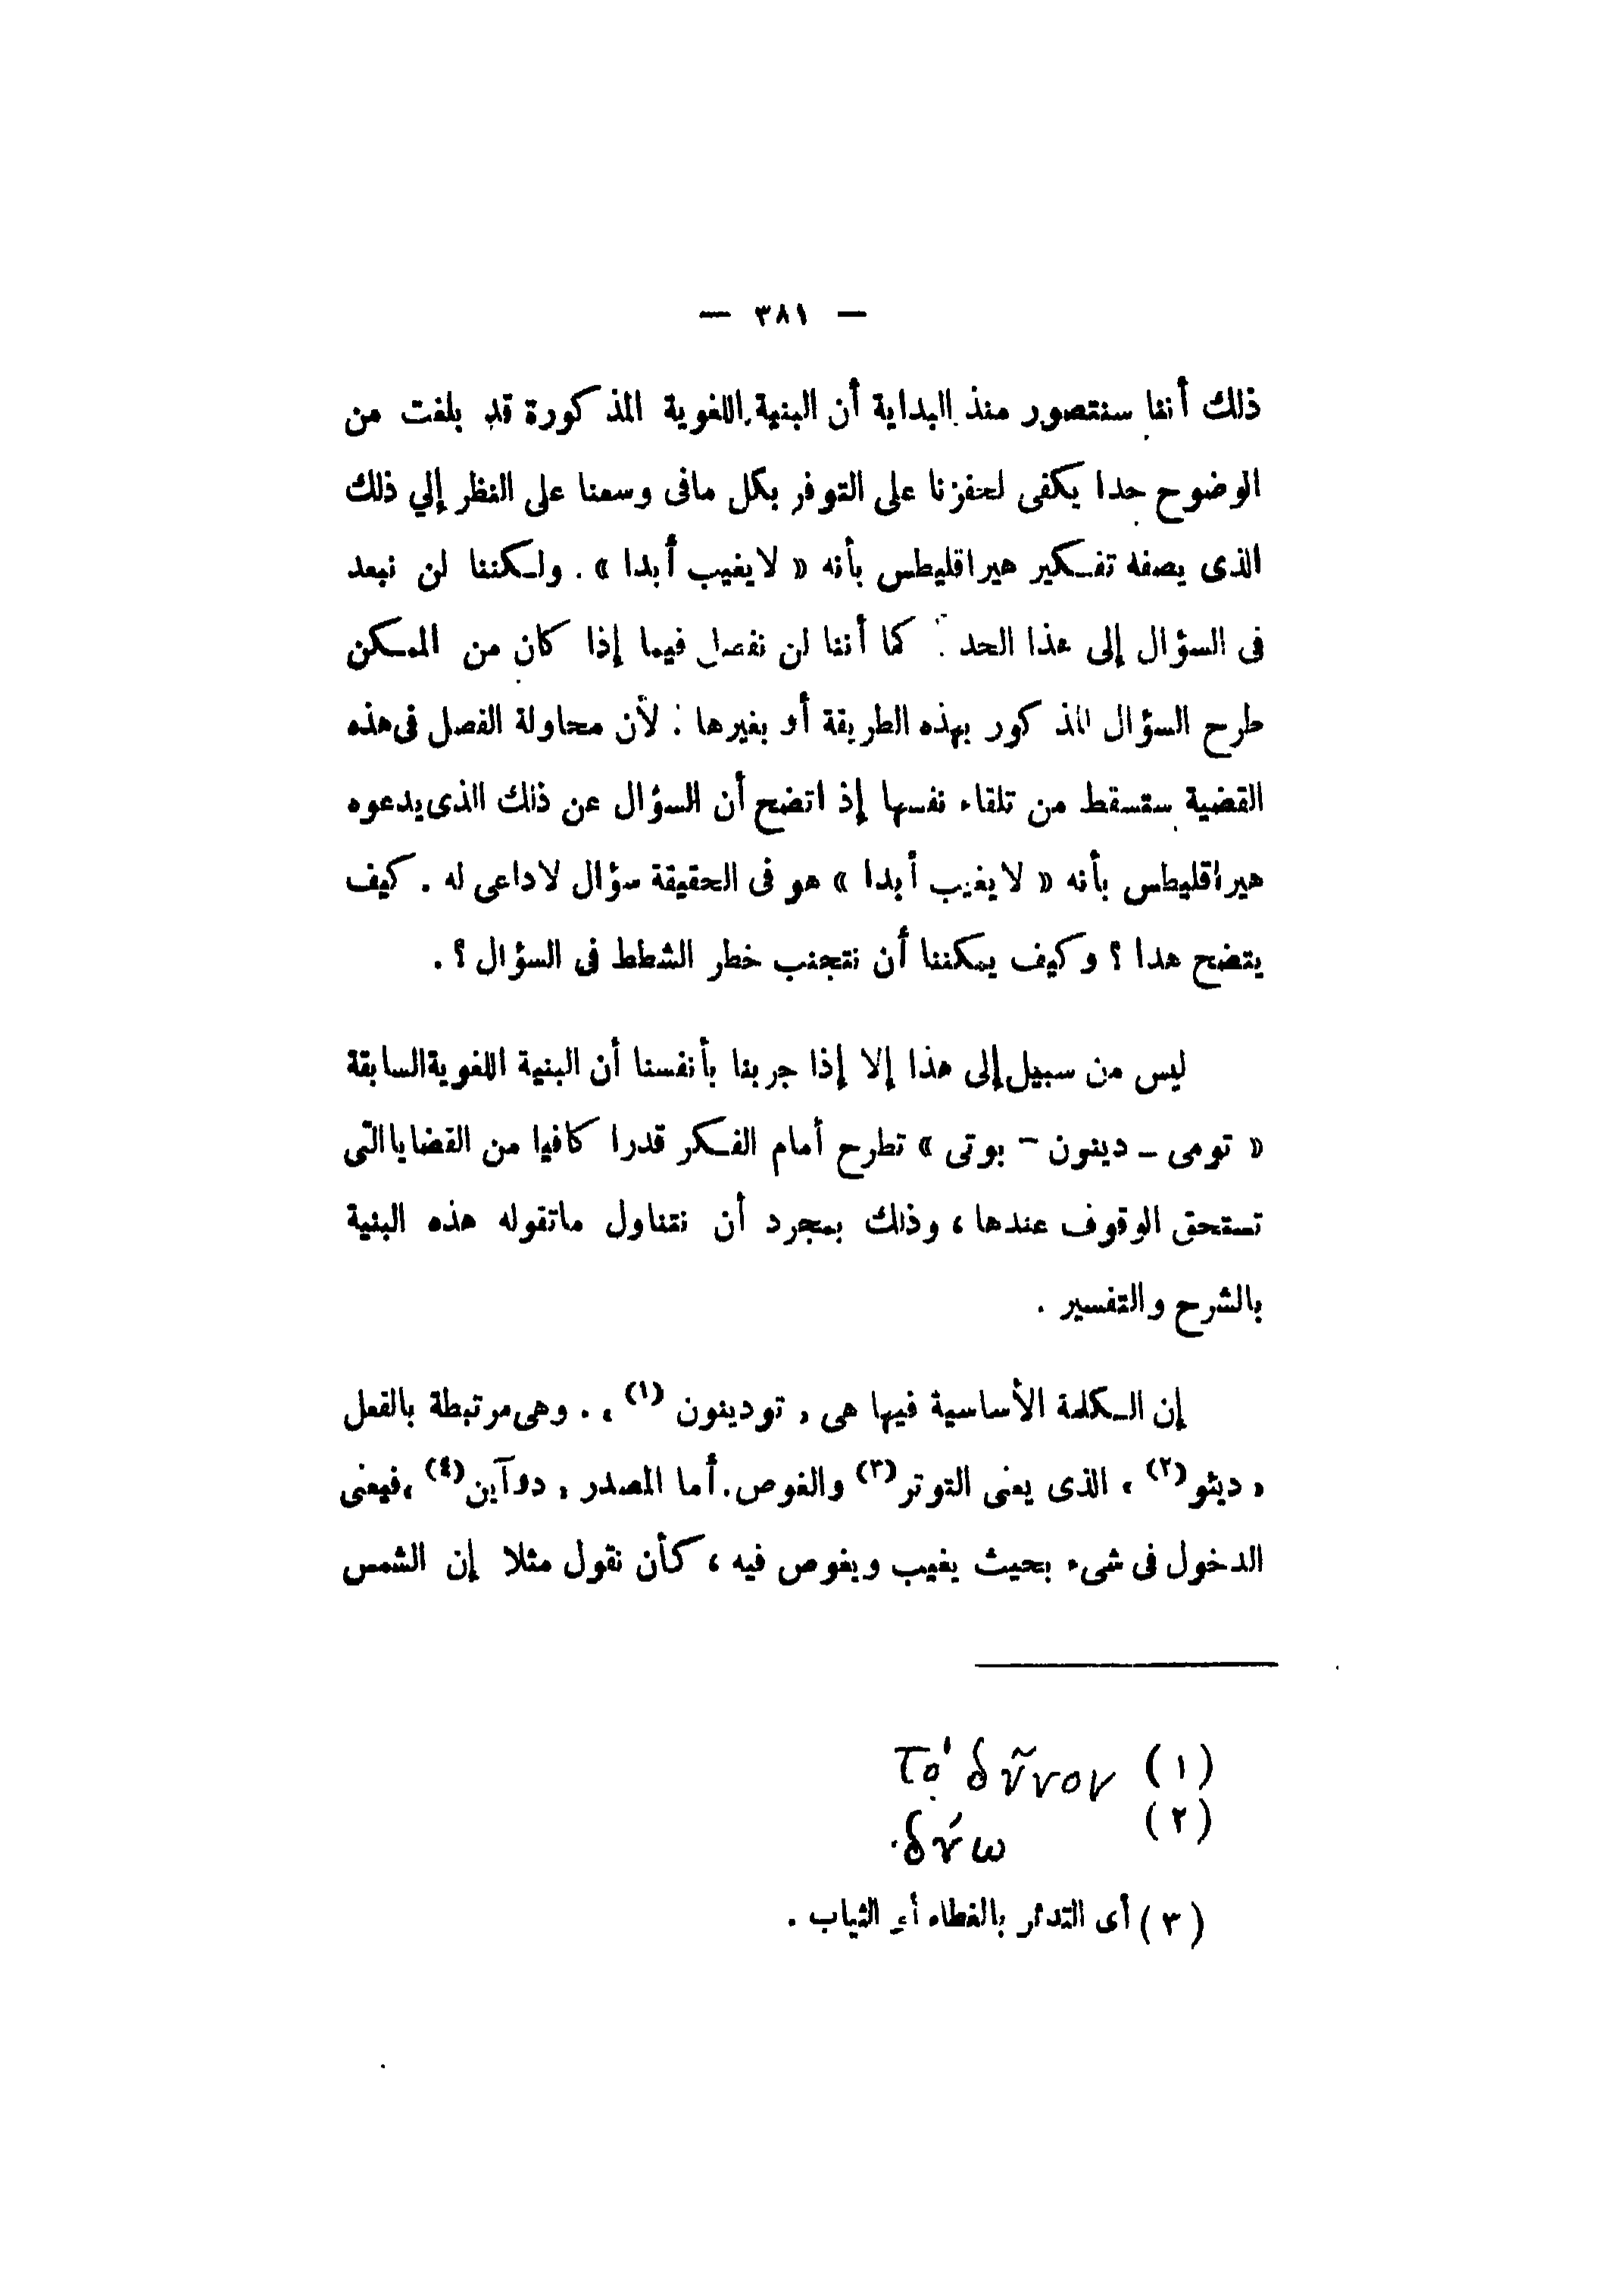 — ٣٨١ —
ذلك أننا سنتصور منذ البداية أن البنية اللغوية المذكورة قد بلغت من
الوضوح حدا يكفى لحفزنا على التوفر بكل مافى وسعنا على النظر إلي ذلك
الذى يصفه تفكير هيراقليطس بأنه « لايغيب أبدا » . ولكننا لن نبعد
فى السؤال إلى هذا الحد . كما أننا لن نفصل فيما إذا كان من الممكن
طرح السؤال المذكور بهذه الطريقة أو بغيرها . لأن محاولة الفصل فى هذه
القضية ستسقط من تلقاء نفسها إذ اتضح أن السؤال عن ذلك الذى يدعوه
هيراقليطس بأنه « لايغيب أبدا » هو فى الحقيقة سؤال لاداعى له . كيف
يتضح هدا ؟ وكيف يمكننا أن نتجنب خطر الشطط فى السؤال ؟ .
ليس من سبيل إلى هذا إلا إذا جربنا بأنفسنا أن البنية اللغوية السابقة
« تومى – دينون – بوتى » تطرح أمام الفكر قدرا كافيا من القضايا التى
تستحق الوقوف عندها ، وذلك بمجرد أن نتناول ماتقوله هذه البنية
بالشرح والتفسير .
إن الكلمة الأساسية فيها هى « تودينون (١) » . وهى مرتبطة بالفعل
« ديئو (٢) » الذى يعنى التوتر (٣) والغوص . أما المصدر « دوآين (٤) » فيعنى
الدخول فى شىء بحيث يغيب ويغوص فيه ، كأن نقول مثلا إن الشمس
(١) τό δῦνον
(٢) δύω
(٣) أى التدثر بالغطاء أو الثياب .